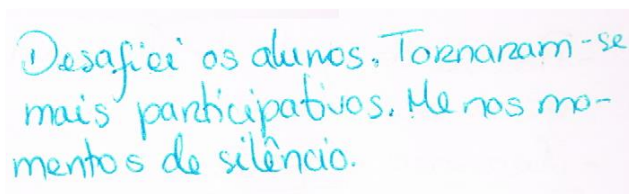 Desafiei os alunos. Tornaram-se
mais participativos. Menos mo-
mentos de silêncio.